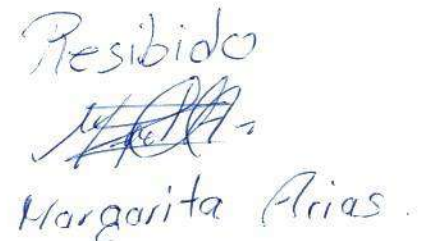 Resibido
Margarita Arias.